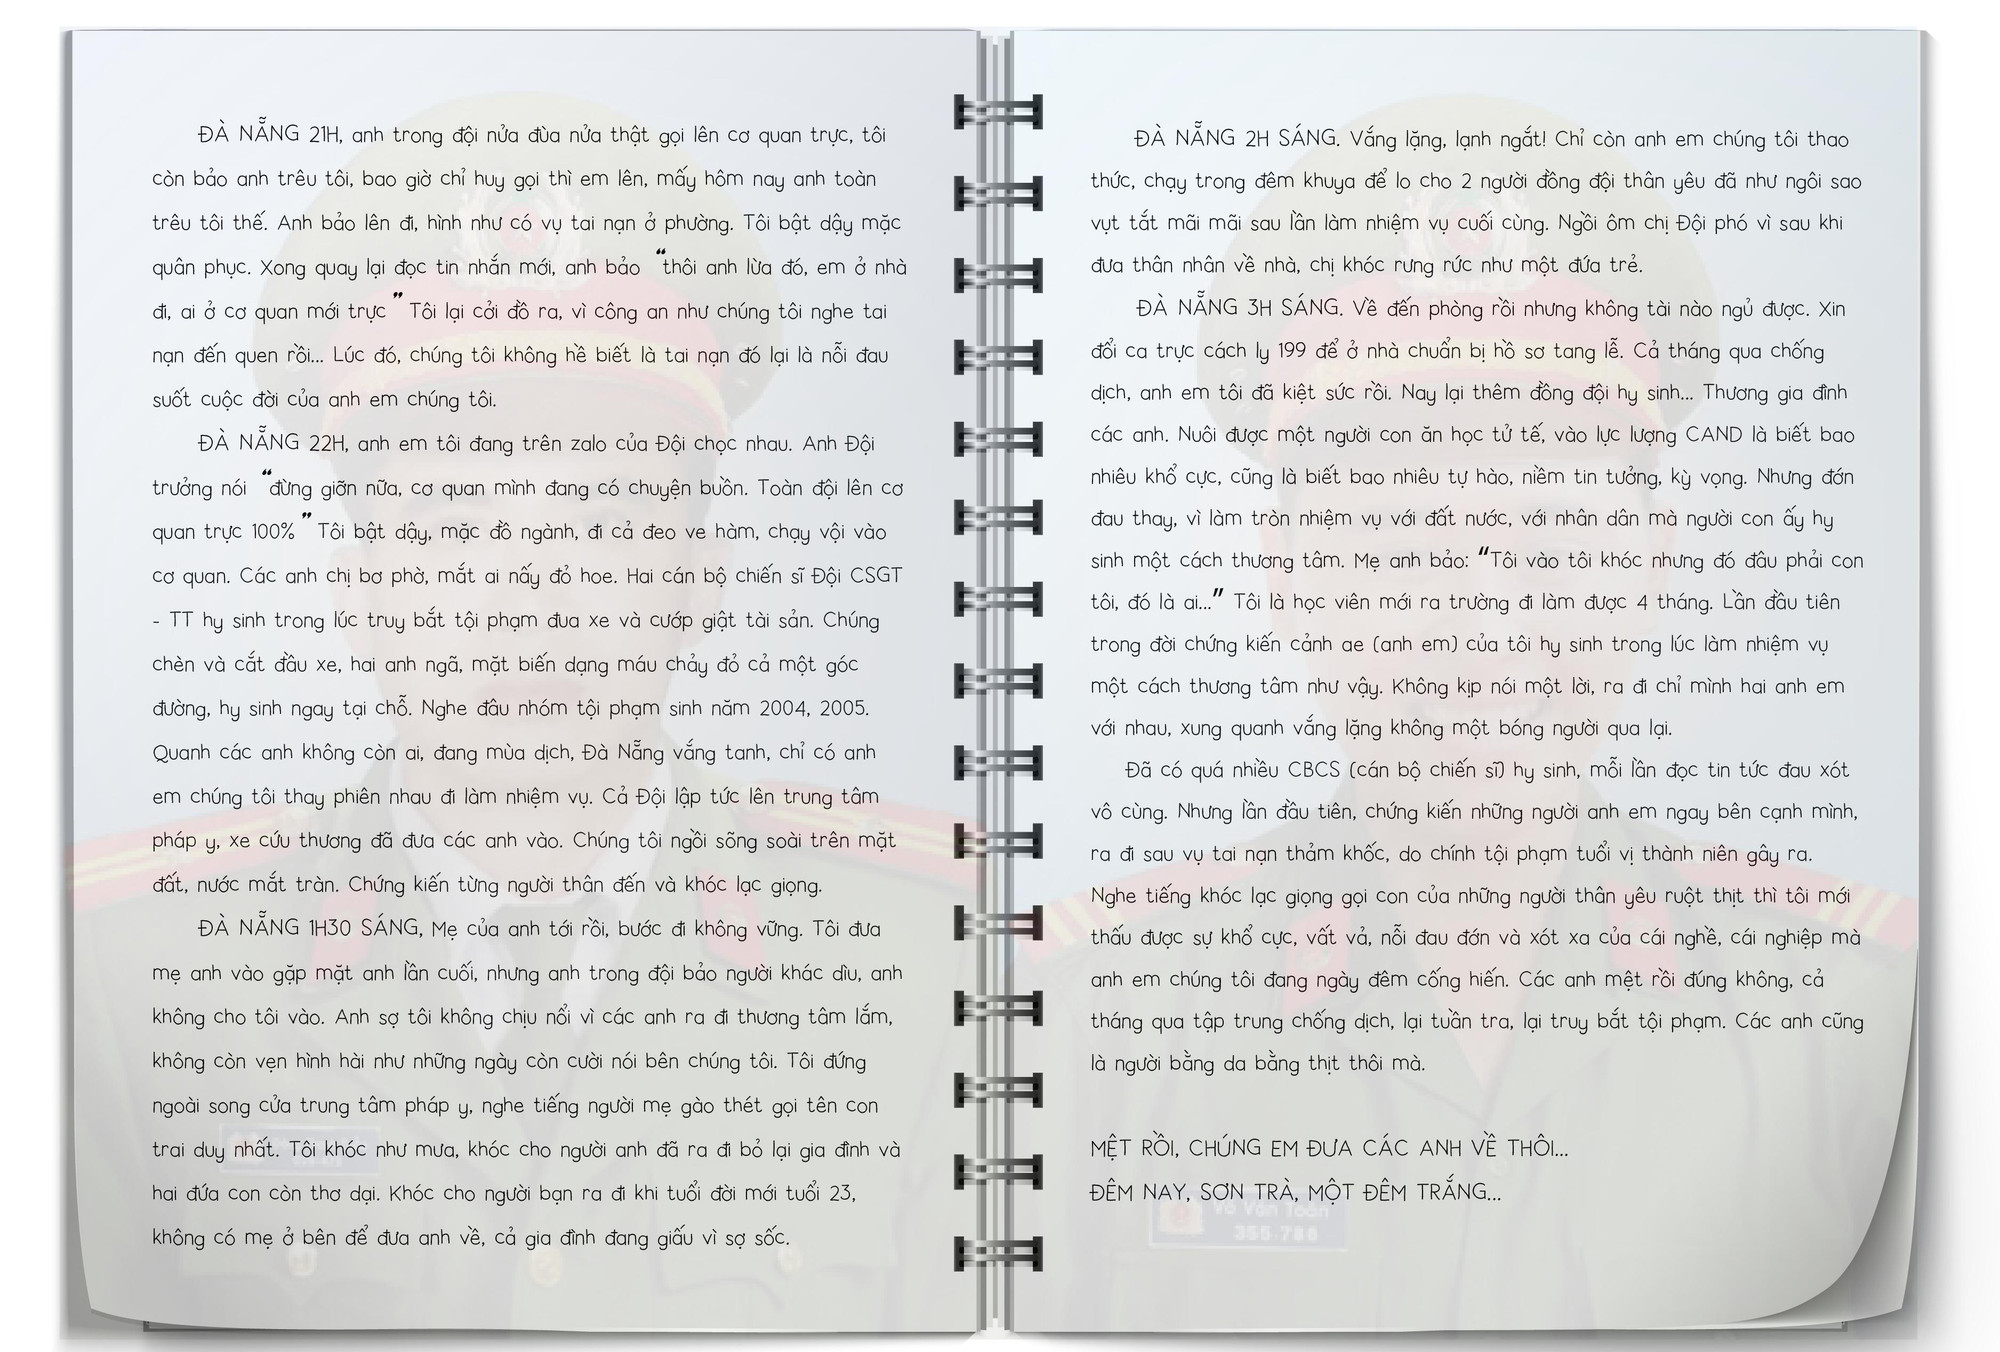 ĐÀ NẴNG 21H, anh trong đội nửa đùa nửa thật gọi lên cơ quan trực, tôi
còn bảo anh trêu tôi, bao giờ chỉ huy gọi thì em lên, mấy hôm nay anh toàn
trêu tôi thế. Anh bảo lên đi, hình như có vụ tai nạn ở phường. Tôi bật dậy mặc
quân phục. Xong quay lại đọc tin nhắn mới, anh bảo “thôi anh lừa đó, em ở nhà
đi, ai ở cơ quan mới trực” Tôi lại cởi đồ ra, vì công an như chúng tôi nghe tai
nạn đến quen rồi... Lúc đó, chúng tôi không hề biết là tai nạn đó lại là nỗi đau
suốt cuộc đời của anh em chúng tôi.
ĐÀ NẴNG 22H, anh em tôi đang trên zalo của Đội chọc nhau. Anh Đội
trưởng nói “đừng giỡn nữa, cơ quan mình đang có chuyện buồn. Toàn đội lên cơ
quan trực 100%” Tôi bật dậy, mặc đồ ngành, đi cả đeo ve hàm, chạy vội vào
cơ quan. Các anh chị bơ phờ, mắt ai nấy đỏ hoe. Hai cán bộ chiến sĩ Đội CSGT
- TT hy sinh trong lúc truy bắt tội phạm đua xe và cướp giật tài sản. Chúng
chèn và cắt đầu xe, hai anh ngã, mặt biến dạng máu chảy đỏ cả một góc
đường, hy sinh ngay tại chỗ. Nghe đâu nhóm tội phạm sinh năm 2004, 2005.
Quanh các anh không còn ai, đang mùa dịch, Đà Nẵng vắng tanh, chỉ có anh
em chúng tôi thay phiên nhau đi làm nhiệm vụ. Cả Đội lập tức lên trung tâm
pháp y, xe cứu thương đã đưa các anh vào. Chúng tôi ngồi sõng soài trên mặt
đất, nước mắt tràn. Chứng kiến từng người thân đến và khóc lạc giọng.
ĐÀ NẴNG 1H30 SÁNG, Mẹ của anh tới rồi, bước đi không vững. Tôi đưa
mẹ anh vào gặp mặt anh lần cuối, nhưng anh trong đội bảo người khác dìu, anh
không cho tôi vào. Anh sợ tôi không chịu nổi vì các anh ra đi thương tâm lắm,
không còn vẹn hình hài như những ngày còn cười nói bên chúng tôi. Tôi đứng
ngoài song cửa trung tâm pháp y, nghe tiếng người mẹ gào thét gọi tên con
trai duy nhất. Tôi khóc như mưa, khóc cho người anh đã ra đi bỏ lại gia đình và
hai đứa con còn thơ dại. Khóc cho người bạn ra đi khi tuổi đời mới tuổi 23,
không có mẹ ở bên để đưa anh về, cả gia đình đang giấu vì sợ sốc.
ĐÀ NẴNG 2H SÁNG. Vắng lặng, lạnh ngắt! Chỉ còn anh em chúng tôi thao
thức, chạy trong đêm khuya để lo cho 2 người đồng đội thân yêu đã như ngôi sao
vụt tắt mãi mãi sau lần làm nhiệm vụ cuối cùng. Ngồi ôm chị Đội phó vì sau khi
đưa thân nhân về nhà, chị khóc rưng rức như một đứa trẻ.
ĐÀ NẴNG 3H SÁNG. Về đến phòng rồi nhưng không tài nào ngủ được. Xin
đổi ca trực cách ly 199 để ở nhà chuẩn bị hồ sơ tang lễ. Cả tháng qua chống
dịch, anh em tôi đã kiệt sức rồi. Nay lại thêm đồng đội hy sinh... Thương gia đình
các anh. Nuôi được một người con ăn học tử tế, vào lực lượng CAND là biết bao
nhiêu khổ cực, cũng là biết bao nhiêu tự hào, niềm tin tưởng, kỳ vọng. Nhưng đớn
đau thay, vì làm tròn nhiệm vụ với đất nước, với nhân dân mà người con ấy hy
sinh một cách thương tâm. Mẹ anh bảo: “Tôi vào tôi khóc nhưng đó đâu phải con
tôi, đó là ai...” Tôi là học viên mới ra trường đi làm được 4 tháng. Lần đầu tiên
trong đời chứng kiến cảnh ae (anh em) của tôi hy sinh trong lúc làm nhiệm vụ
một cách thương tâm như vậy. Không kịp nói một lời, ra đi chỉ mình hai anh em
với nhau, xung quanh vắng lặng không một bóng người qua lại.
Đã có quá nhiều CBCS (cán bộ chiến sĩ) hy sinh, mỗi lần đọc tin tức đau xót
vô cùng. Nhưng lần đầu tiên, chứng kiến những người anh em ngay bên cạnh mình,
ra đi sau vụ tai nạn thảm khốc, do chính tội phạm tuổi vị thành niên gây ra.
Nghe tiếng khóc lạc giọng gọi con của những người thân yêu ruột thịt thì tôi mới
thấu được sự khổ cực, vất vả, nỗi đau đớn và xót xa của cái nghề, cái nghiệp mà
anh em chúng tôi đang ngày đêm cống hiến. Các anh mệt rồi đúng không, cả
tháng qua tập trung chống dịch, lại tuần tra, lại truy bắt tội phạm. Các anh cũng
là người bằng da bằng thịt thôi mà.
MỆT RỒI, CHÚNG EM ĐƯA CÁC ANH VỀ THÔI...
ĐÊM NAY, SƠN TRÀ, MỘT ĐÊM TRẮNG...
Võ Văn Toàn
355-786